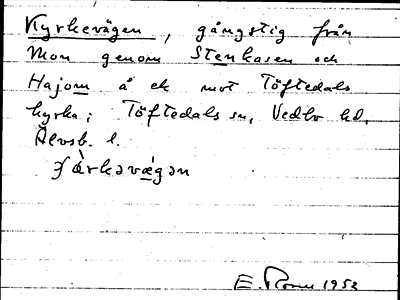 Kyrkevägen, gångstig från
Mon genom Stenkasen och
Hajom å ek mot Töftedals
kyrka; Töftedals sn, Vedbo hd,
Älvsb. l.
E. Roum 1952